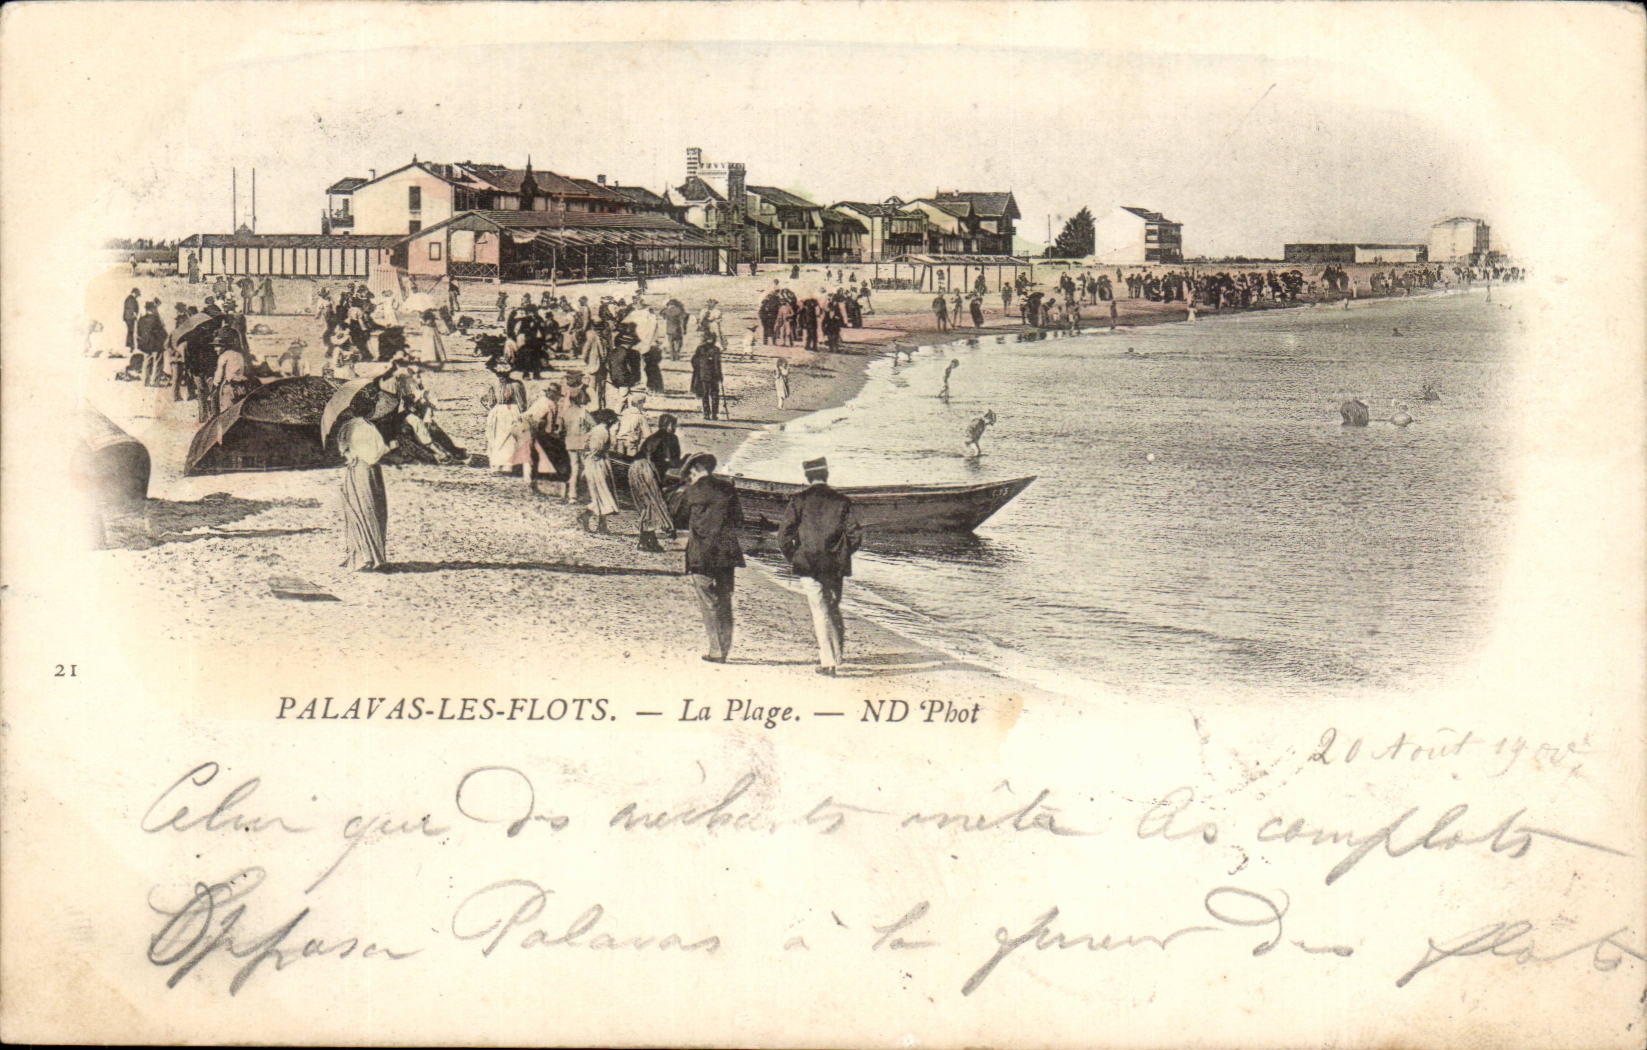 21
PALAVAS-LES-FLOTS. — La Plage. — ND Phot
20 Août
Celui que des méchants arrête les complots
Opposa Palavas à la fureur des flots